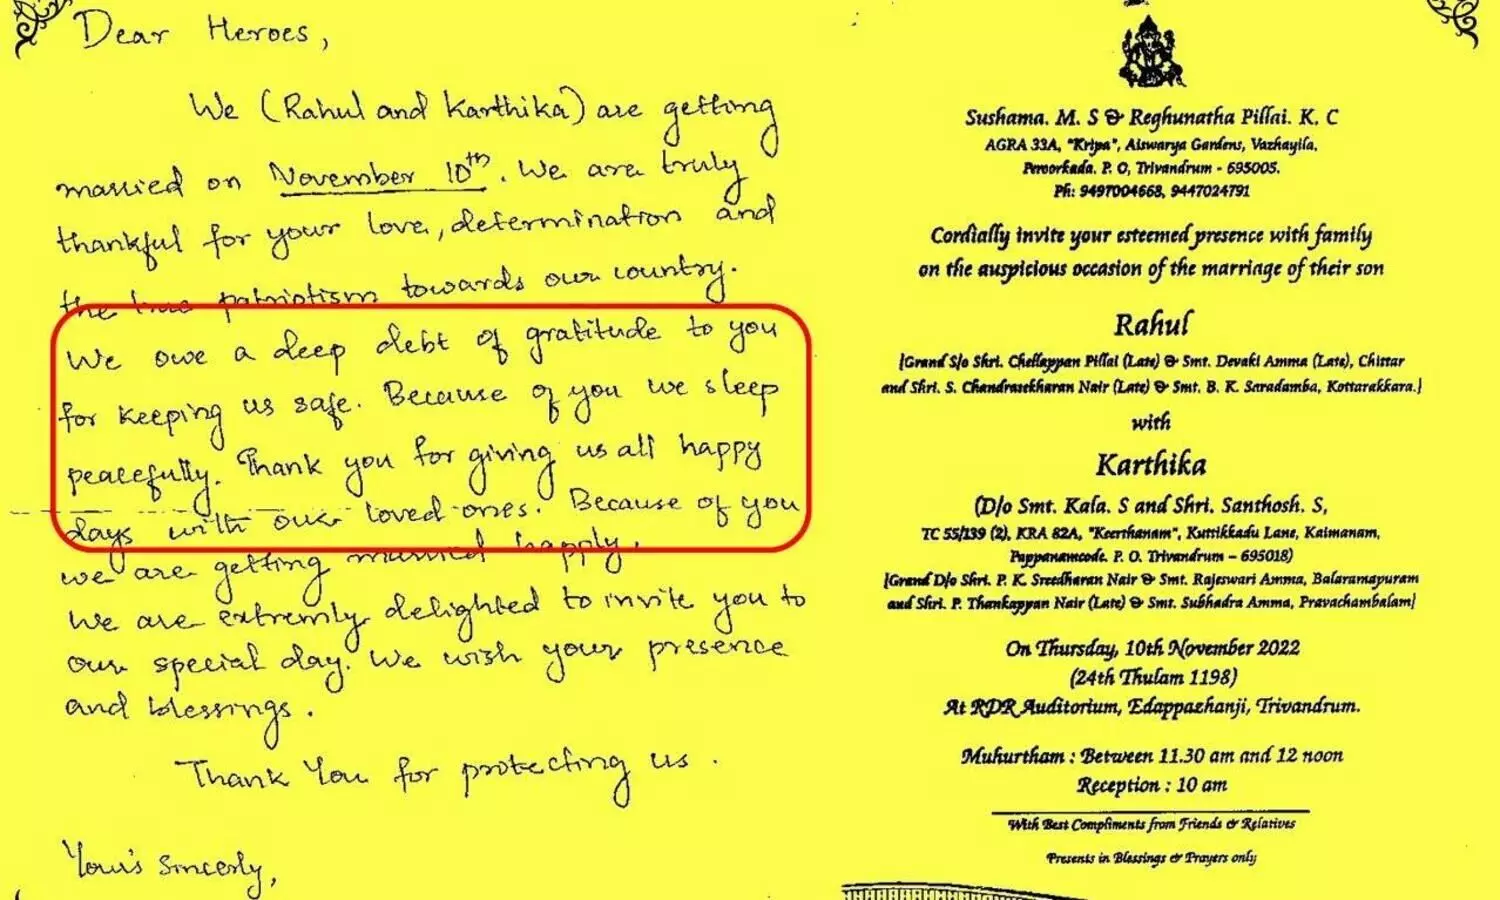 Dear Heroes,
We (Rahul and Karthika) are getting
married on November 10th. We are truly
thankful for your love, determination and
the true patriotism towards our country.
We owe a deep debt of gratitude to you
for keeping us safe. Because of you we sleep
peacefully. Thank you for giving us all happy
days with our loved ones. Because of you
we are getting married happly.
We are extremly delighted to invite you to
our special day. We wish your presence
and blessings.
Thank You for protecting us.
Your's Sincerly,
Sushama. M. S & Reghunatha Pillai. K. C
AGRA 33A, "Kripa", Aiswarya Gardens, Vazhayila,
Peroorkada. P. O, Trivandrum - 695005.
Ph: 9497004668, 9447024791
Cordially invite your esteemed presence with family
on the auspicious occasion of the marriage of their son
Rahul
[Grand S/o Shri. Chellappan Pillai (Late) & Smt. Devaki Amma (Late), Chittar
and Shri. S. Chandrasekharan Nair (Late) & Smt. B. K. Saradamba, Kottarakkara.]
with
Karthika
(D/o Smt. Kala. S and Shri. Santhosh. S,
TC 55/139 (2), KRA 82A, "Keerthanam", Kuttikkadu Lane, Kaimanam,
Pappanamcode. P. O. Trivandrum – 695018)
[Grand D/o Shri. P. K. Sreedharan Nair & Smt. Rajeswari Amma, Balaramapuram
and Shri. P. Thankappan Nair (Late) & Smt. Subhadra Amma, Pravachambalam]
On Thursday, 10th November 2022
(24th Thulam 1198)
At RDR Auditorium, Edappazhanji, Trivandrum.
Muhurtham : Between 11.30 am and 12 noon
Reception : 10 am
With Best Compliments from Friends & Relatives
Presents in Blessings & Prayers only